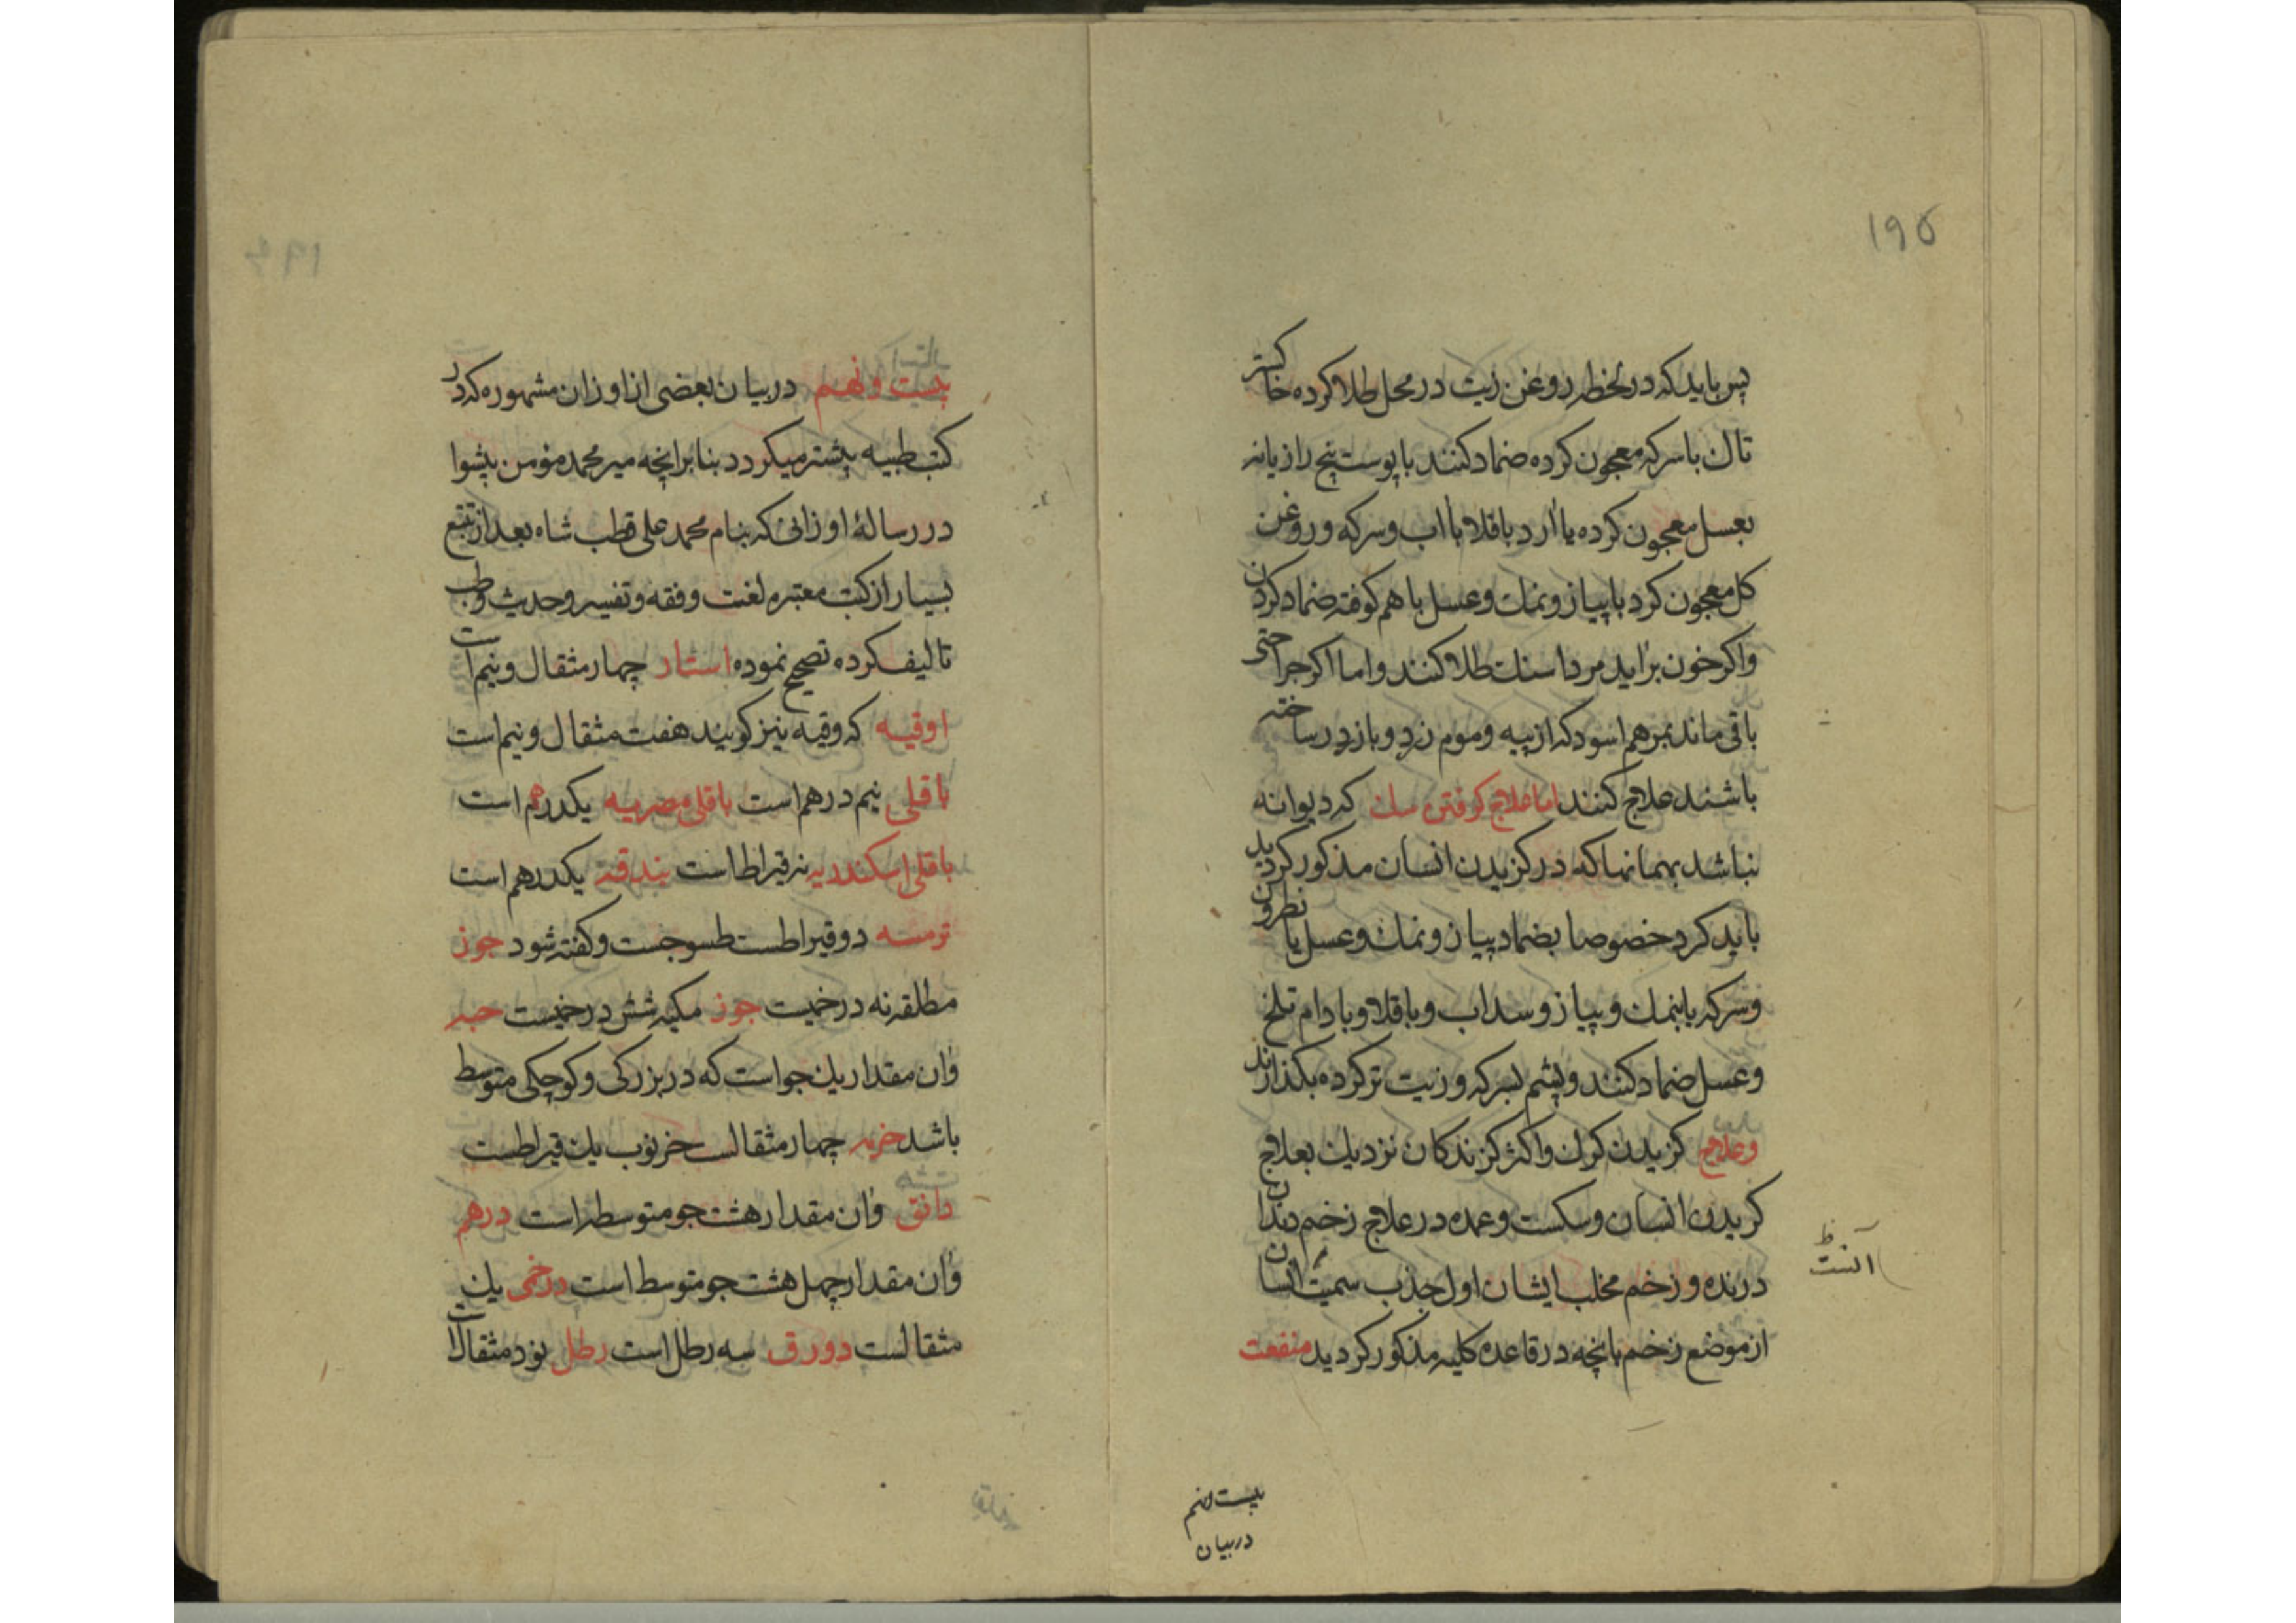 ۱۹۵
پس باید که در لحظه روغن زیت در محل طلا کرده خاکستر
تاك با سرکه معجون کرده ضماد کنند با پوست بیخ رازیانه
بعسل معجون کرده یا آرد باقلا با آب و سرکه و روغن
کل معجون کرد با پیاز و نمك و عسل با هم کوفته ضماد کردن
واکر خون براید مرداسنك طلا کنند و اما اکر جراحتی
باقی ماند بمرهم اسود که از پیه و موم زرد و بازرد ساخته
باشند علاج کنند اما علاج کرفتن سك که دیوانه
نباشد بهمانها که در کزیدن انسان مذکور کردید
باید کرد خصوصا بضماد پیاز و نمك و عسل یا نطرون
وسرکه یا بنمك و پیاز و سداب و باقلا و بادام تلخ
وعسل ضماد کنند و پشم بسرکه و زیت تر کرده بکذارند
وعلاج کزیدن کرك و اکثر کزندکان نزدیك بعلاج
کزیدن انسان و سکست و عمده در علاج زخم دندان
درنده و زخم مخلب ایشان اول جذب سمیت انسان
آنست ظ
از موضع زخم بانچه در قاعده کلیه مذکور کردید منفعت
بیست نهم
در بیان
بیست و نهم در بیان بعضی از اوزان مشهوره که در
کتب طبیه بیشتر میکردد بنا بر آنچه میر محمد مؤمن پیشوا
در رسالهٔ اوزانی که بنام محمد علی قطب شاه بعد از تتبع
بسیار از کتب معتبره لغت و فقه و تفسیر و حدیث و طب
تالیف کرده تصحیح نموده استار چهار مثقال و نیم است
اوقیه که وقیه نیز کویند هفت مثقال و نیم است
باقلی نیم درهم است باقلی مصریه یکدرهم است
باقلی اسکندریه نه قیراط است بندقه یکدرهم است
ترمسه دو قیراطست طسوجست و کفته شود جوز
مطلقه نه درخمیست جوز مکیه شش درخمیست حبه
وآن مقدار یك جو است که در بزرکی و کوچکی متوسط
باشد خزیه چهار مثقالست خرنوب یك قیراطست
دانق وآن مقدار هشت جو متوسط است درهم
وآن مقدار چهل هشت جو متوسط است درخمی یك
مثقالست دورق سه رطل است رطل نود مثقالست